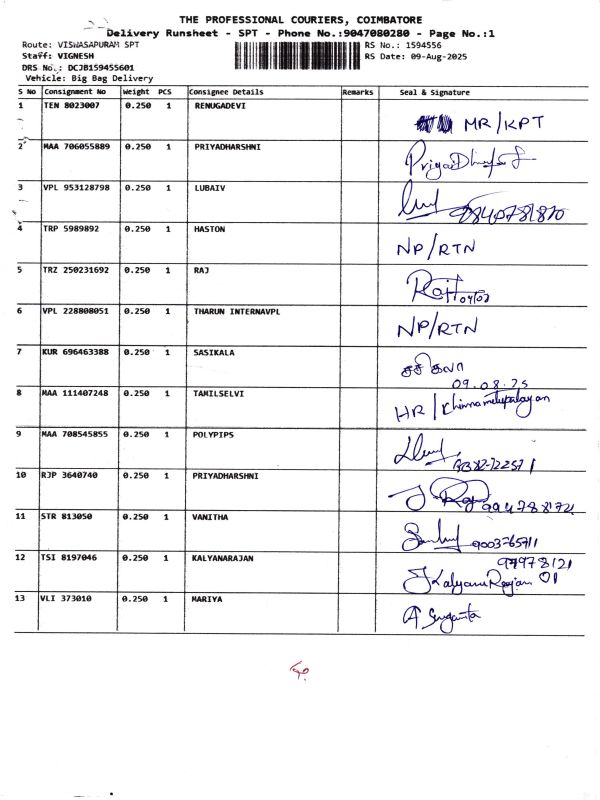 THE PROFESSIONAL COURIERS, COIMBATORE
Delivery Runsheet - SPT - Phone No.:9047080280 - Page No.:1
Route: VISWASAPURAM SPT RS No.: 1594556
Staff: VIGNESH RS Date: 09-Aug-2025
DRS No.: DCJB159455601
Vehicle: Big Bag Delivery
S No Consignment No Weight PCS Consignee Details Remarks Seal & Signature
1 TEN 8023007 0.250 1 RENUGADEVI MR/KPT
2 MAA 706055889 0.250 1 PRIYADHARSHNI
3 VPL 953128798 0.250 1 LUBAIV 9840781870
4 TRP 5989892 0.250 1 HASTON NP/RTN
5 TRZ 250231692 0.250 1 RAJ
6 VPL 228808051 0.250 1 THARUN INTERNAVPL NP/RTN
7 KUR 696463388 0.250 1 SASIKALA சசிகலா
09.08.25
8 MAA 111407248 0.250 1 TAMILSELVI HR/
9 MAA 708545855 0.250 1 POLYPIPS
10 RJP 3640740 0.250 1 PRIYADHARSHNI
11 STR 813050 0.250 1 VANITHA 9003765711
12 TSI 8197046 0.250 1 KALYANARAJAN 97978121
01
13 VLI 373010 0.250 1 MARIYA